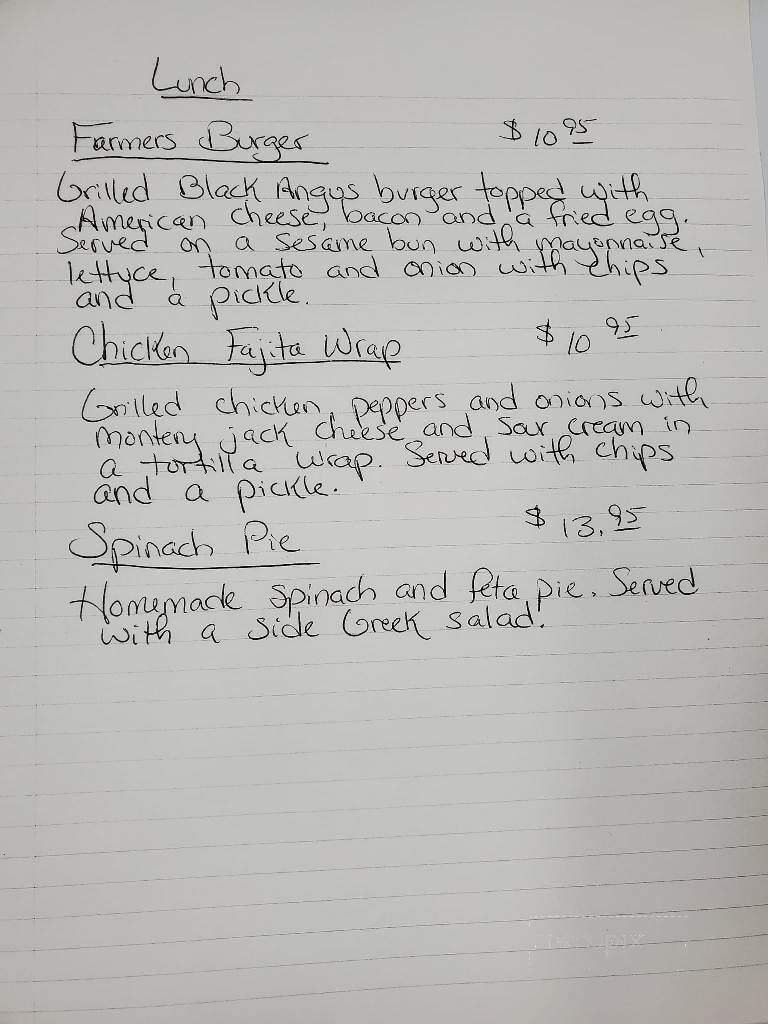 Lunch
Farmers Burger $10 95
Grilled Black Angus burger topped with
American cheese, bacon and a fried egg.
Served on a sesame bun with mayonnaise,
lettuce, tomato and onion with chips
and a pickle.
Chicken Fajita Wrap $10 95
Grilled chicken, peppers and onions with
montery jack cheese and sour cream in
a tortilla wrap. Served with chips
and a pickle.
Spinach Pie $13.95
Homemade spinach and feta pie. Served
with a side Greek salad.